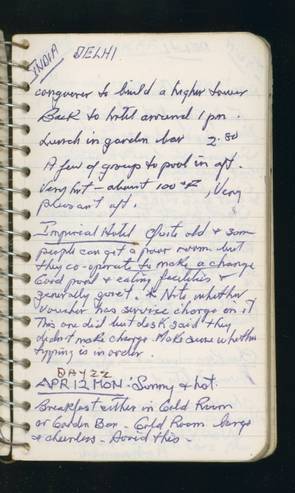 INDIA DELHI
conqueror to build a higher tower
Back to hotel around 1 pm.
Lunch in garden bar 2.80
A few of group to pool in aft.
Very hot - about 100°F, Very
pleasant aft.
Imperial Hotel Quit old & some
people can get a poor room but
they co-operate to make a change
Good pool & eating facilities
generally good. * Note, whether
voucher has service charge on it
This one did but desk said they
didn't make charge. Make sure whether
typing is in order.
DAY 22
APR 12 MON: Sunny & hot.
Breakfast either in Gold Room
or Garden Bar - Gold Room large
& cheerless - Avoid this -